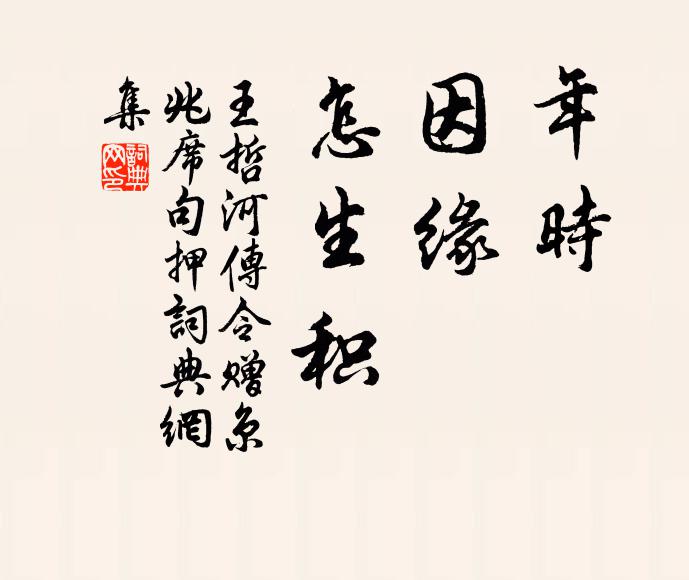 年時
因緣
怎生积
王哲河傳令赠京
兆席句押詞典網
集
詞典網印